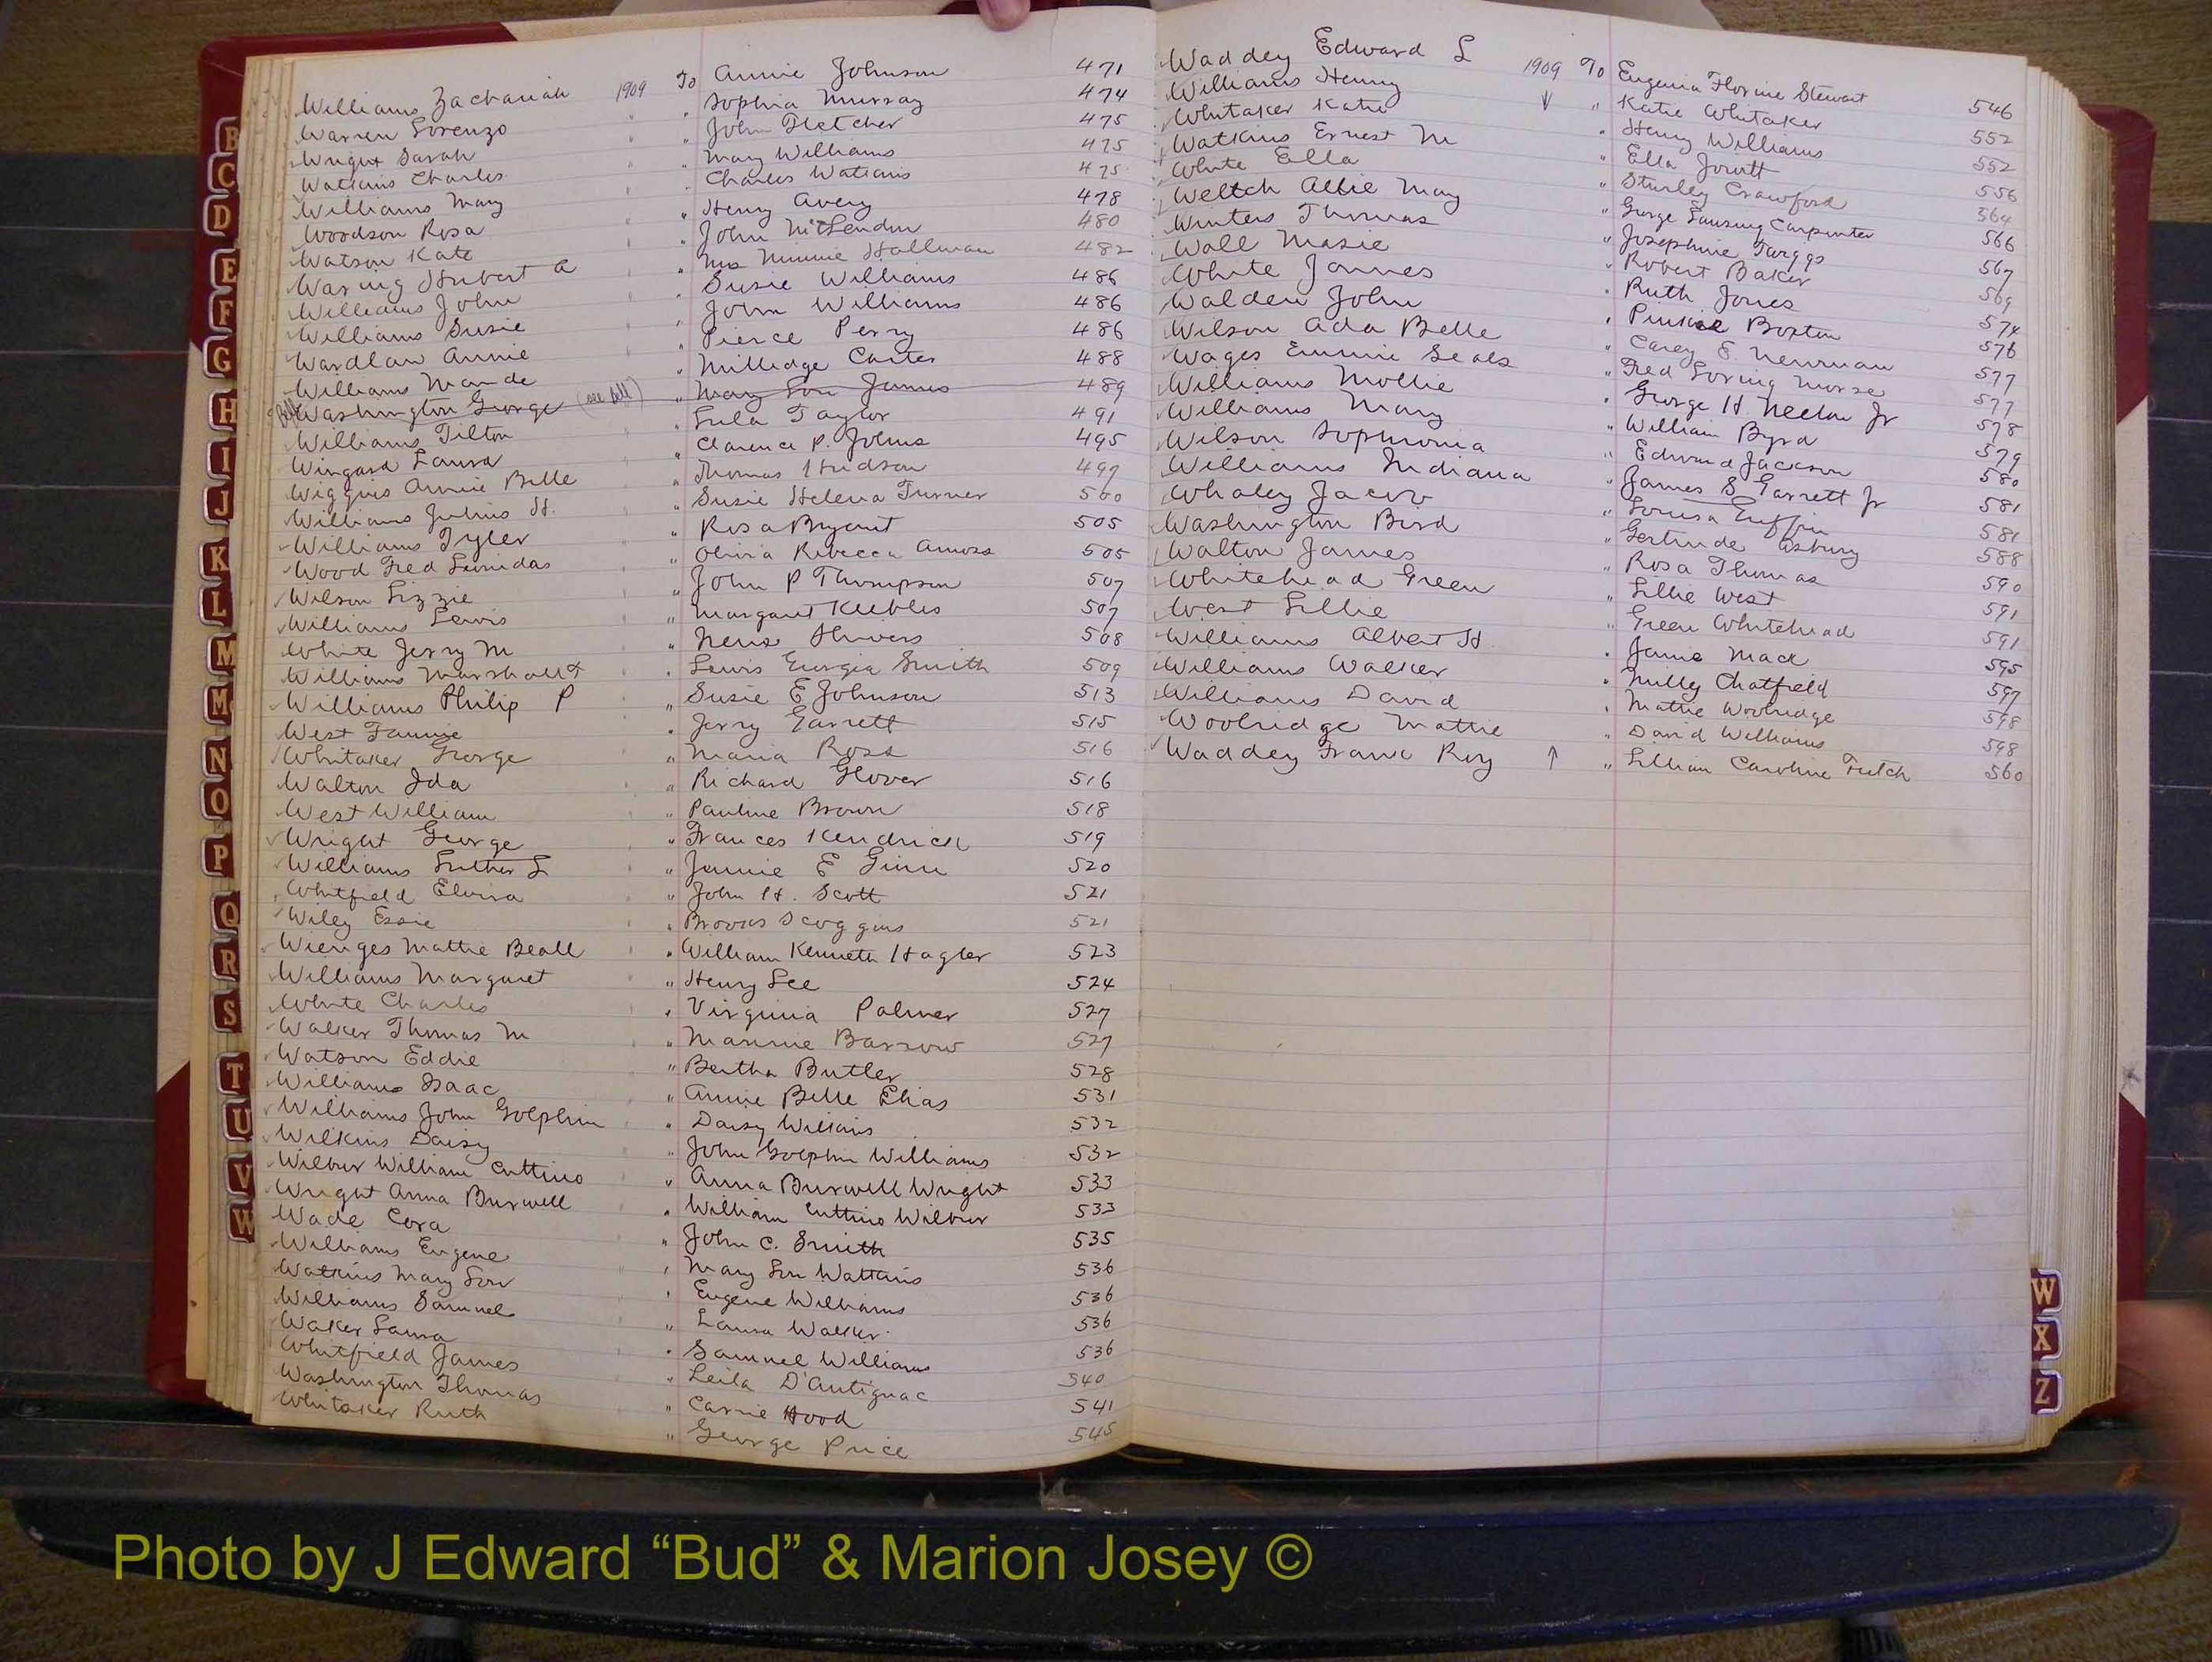 Williams Zachariah 1909 To Annie Johnson 471
Warren Lorenzo " Sophia Murray 474
Wright Sarah " John Fletcher 475
Watkins Charles " Mary Williams 475
Williams Mary " Charles Watkins 475
Woodson Rosa " Henry Avery 478
Watson Kate " John McLendon 480
Waring Hubert A " Mrs Minnie Hallman 482
Williams John " Susie Williams 486
Williams Susie " John Williams 486
Wardlaw Annie " Pierce Perry 486
Williams Maude " Milledge Carter 488
Washington George (see bill) " Mary Lou James 489
Williams Tilton " Lula Taylor 491
Wingard Laura " Clarence P. Johns 495
Wiggins Annie Belle " Thomas Hudson 497
Williams Julius H. " Susie Helena Turner 500
Williams Tyler " Rosa Bryant 505
Wood Fred Leonidas " Olivia Rebecca Amoss 505
Wilson Lizzie " John P Thompson 507
Williams Lewis " Margaret Keebles 507
White Jerry M " Nena Shivers 508
Williams Marshall T " Lewis Georgia Smith 509
Williams Philip P " Susie E Johnson 513
West Fannie " Jerry Garrett 515
Whitaker George " Maria Ross 516
Walton Ida " Richard Glover 516
West William " Pauline Brown 518
Wright George " Frances Kendrick 519
Williams Luther L " Jamie E Ginn 520
Whitfield Elvira " John H. Scott 521
Wiley Essie " Brooks Scoggins 521
Wienges Mattie Beall " William Kenneth Hagler 523
Williams Margaret " Henry Lee 524
White Charles " Virginia Palmer 527
Walker Thomas M " Mannie Barrow 527
Watson Eddie " Bertha Butler 528
Williams Isaac " Annie Belle Elias 531
Williams John Golphin " Daisy Wilkins 532
Wilkins Daisy " John Golphin Williams 532
Wilbur William Cuttino " Anna Burwell Wright 533
Wright Anna Burwell " William Cuttino Wilbur 533
Wade Cora " John C. Smith 535
Williams Eugene " Mary Lou Watkins 536
Watkins Mary Lou " Eugene Williams 536
Williams Samuel " Laura Walker 536
Waker Laura " Samuel Williams 536
Whitfield James " Leila D'Antignac 540
Washington Thomas " Carrie Hood 541
Whitaker Ruth " George Price 545
Waddey Edward L 1909 To Eugenia Florine Stewart 546
Williams Henry " Katie Whitaker 552
Whitaker Katie " Henry Williams 552
Watkins Ernest M " Ella Jowitt 556
White Ella " Sturley Crawford 564
Weltch Allie May " George Lansing Carpenter 566
Winters Thomas " Josephine Twiggs 567
Wall Masie " Robert Baker 569
White James " Ruth Jones 574
Walden John " Pinkie Boxton 576
Wilson Ada Belle " Carey E. Newman 577
Wages Emmie Seals " Fred Loring Morse 577
Williams Mollie " George H. Neelow Jr 578
Williams Mary " William Byrd 579
Wilson Sophronia " Edward Jackson 580
Williams Indiana " James S Garrett Jr 581
Whaley Jacob " Louisa Truffin 581
Washington Bird " Gertrude Asbury 588
Walton James " Rosa Thomas 590
Whitehead Green " Lillie West 591
West Lillie " Green Whitehead 591
Williams Albert H. " Janie Mack 595
Williams Walker " Milly Chatfield 597
Williams David " Mattie Woolridge 598
Woolridge Mattie " David Williams 598
Waddey Frank Roy " Lillian Caroline Futch 560
B
C
D
E
F
G
H
I
J
K
L
M
Mc
N
O
P
Q
R
S
T
U
V
W
W
X
Z
Photo by J Edward “Bud” & Marion Josey ©